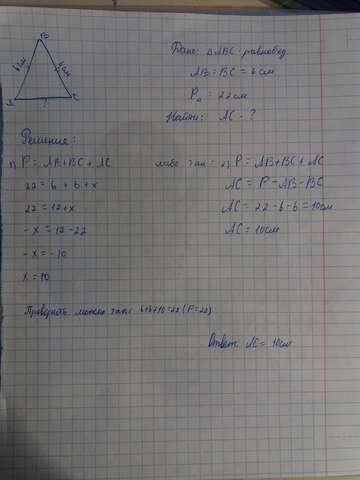 B
6 см
6 см
A
C
?
Дано: △ABC - равнобед.
AB = BC = 6 см
P△ = 22 см
Найти: AC - ?
Решение:
1) P = AB + BC + AC
22 = 6 + 6 + x
22 = 12 + x
-x = 12 - 22
-x = -10
x = 10
либо так: 2) P = AB + BC + AC
AC = P - AB - BC
AC = 22 - 6 - 6 = 10 см
AC = 10 см
Проверить можно так: 6+6+10=22 (P=22)
Ответ: AC = 10 см